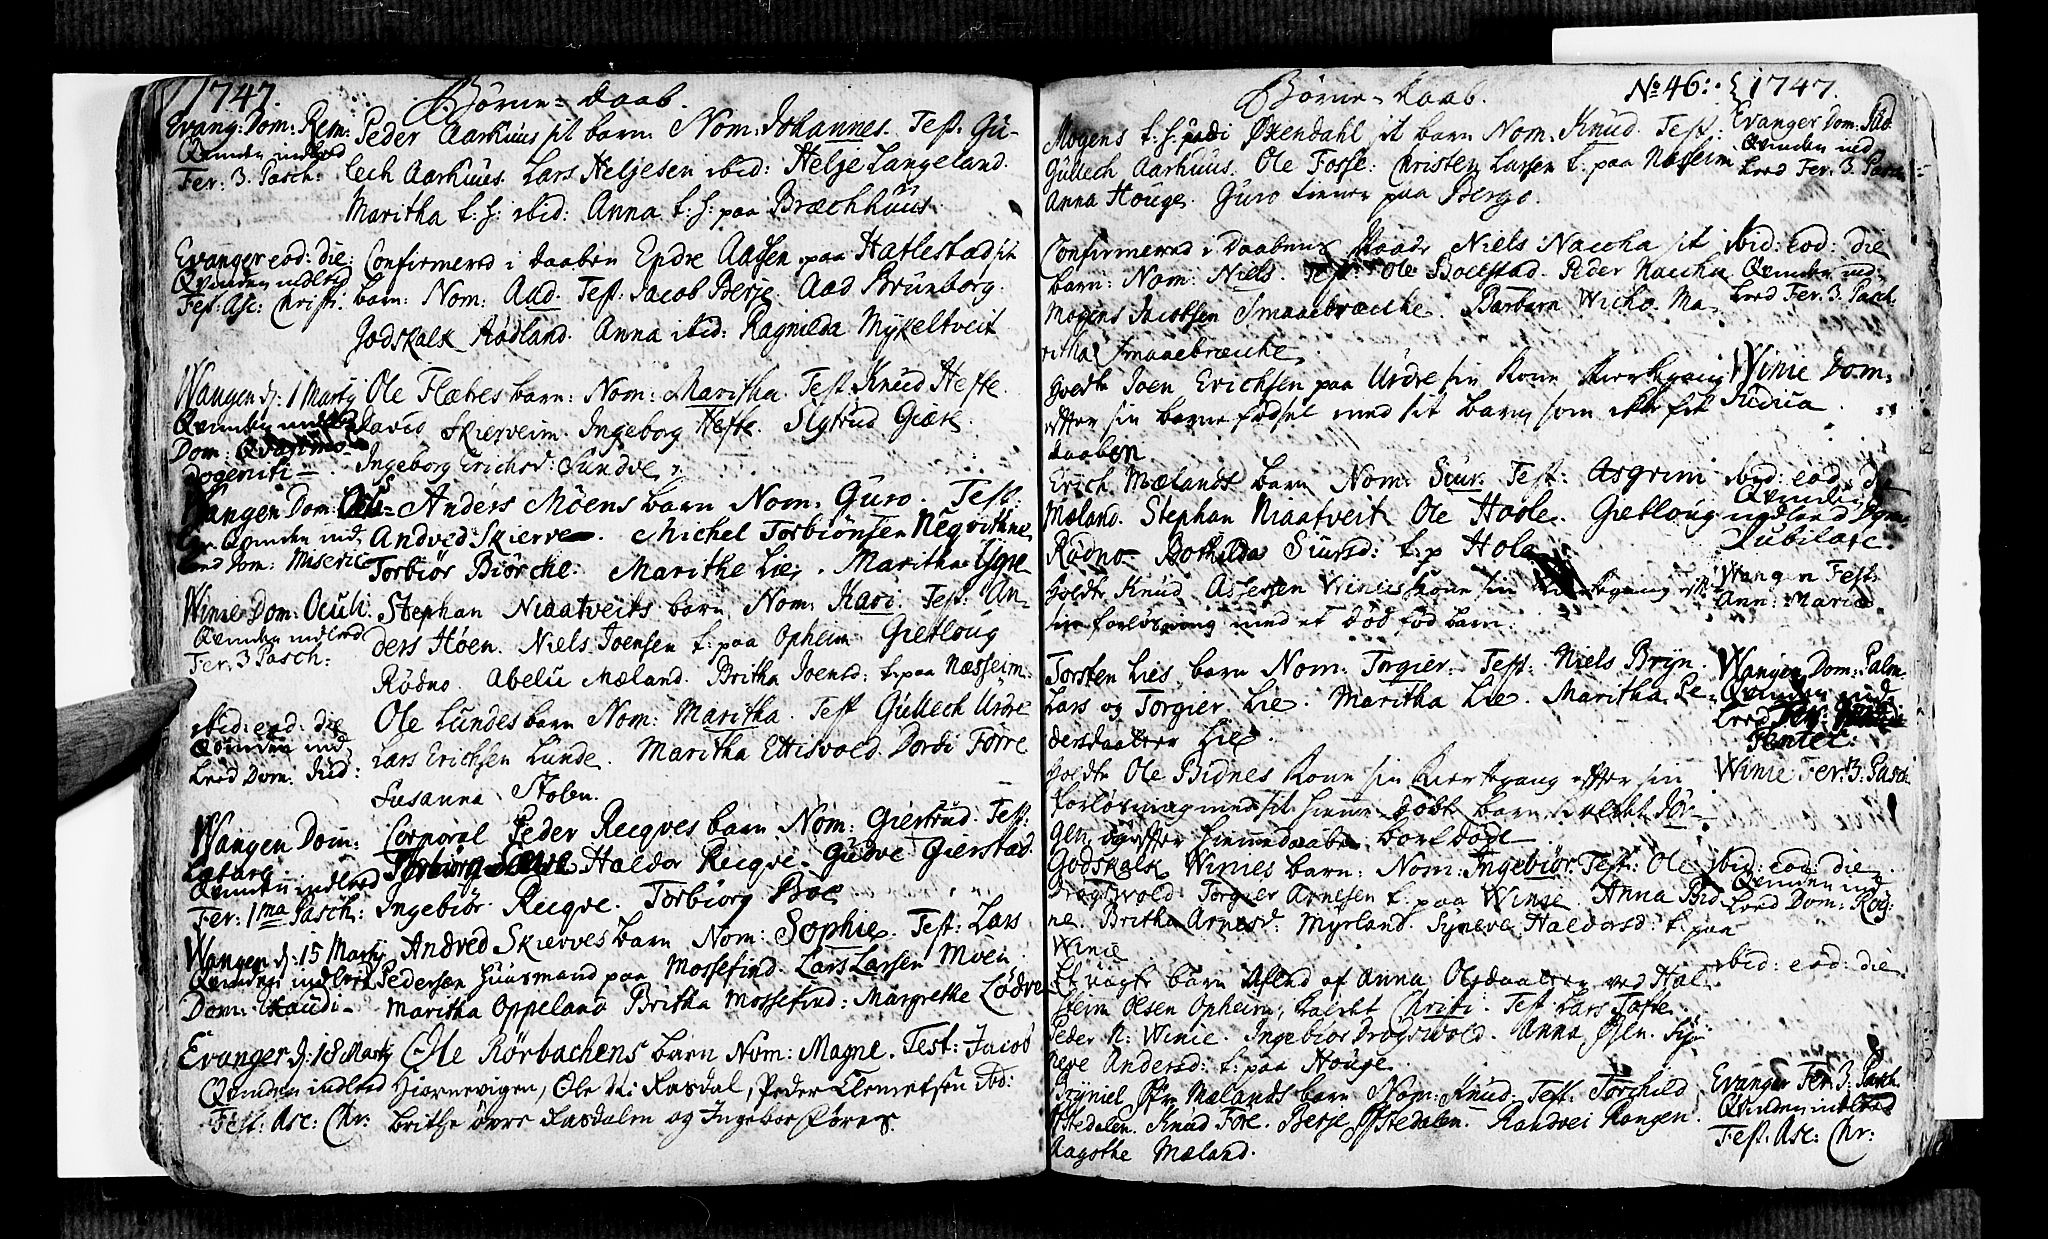 1747.
Börne=Daab.
Evang: Dom: Rem:
Qvinden indleed
Fer: 3. Pasch:
Peder Aarhuus sit barn Nom: Johannes. Test: Gü-
lech Aarhuus. Lars Heljesen ibid: Helje Langeland.
Maritha t: h: ibid: Anna t: h: paa Bræchhuus.
Evanger eod: die:
Qvinden indleed
Fest: Asc: Christi.
Confirmered i daaben Endre Aagsen paa Hatlestad sit
barn: Nom: Aad. Test: Jacob Berje. Aad Brünborg.
Godskalk Rödland. Anna ibid: Ragnilda Mykeltveit
Wangen d: 1 Martÿ
Qvinden indleed
Dom: Qvasimo-
dogeniti
Ole Flætres barn: Nom: Maritha. Test Knud Hefte.
David Skierveim. Ingeborg Hefte. Sigtrud Giære.
Ingeborg Erichsd: Sundve.
Wangen Dom:
Qvinden ind
leed Dom: Miseric
Anders Möens barn Nom: Guro. Test:
Andved Skierve. Michel Torbiönsen
Torbiör Biörche: Marithe Lie. Maritha Ygre
Winie Dom: Oculi.
Qvinden indleed
Fer: 3 Pasch:
Stephan Niaatveits barn Nom: Kari. Test: An-
ders Höen. Niels Joensen t: paa Opheim Gietloug
Rödno. Abelü Mæland. Britha Joensd: t: paa Næsseim.
ibid: eod: die
Qvinden ind
leed Dom: Jud:
Ole Lundes barn Nom: Maritha. Test Güllech Urdre
Lars Erichsen Lunde. Maritha Ettisvold. Dordi Förre
Susanna Stolen.
Wangen Dom:
Lætare
Qvinden indleed
Fer: 1ma Pasch:
Corporal Peder Recqves barn Nom: Giertrud. Test:
Haldor Recqve. Gudve Gierstad
Ingebiör Recqve. Torbiörg Boe
Wangen d: 15 Martÿ
Qvinden indleed
Dom:
Andved Skierves barn Nom: Sophie. Test: Lars
Pedersen Huusmand paa Mossefind. Lars Larsen Möen.
Maritha Oppeland Britha Mossefind: Margrethe Lödve
Evanger d: 18 Martÿ
Qvinden indleed
Fest: Asc: Chr:
Ole Rörbachens barn Nom: Magne. Test: Jacob
Hiornevigen, Ole Rasdal, Peder Clemetsen ibd:
Brithe övre Rasdalen og Ingebor Föres.
Börne=Daab.
No 46: 1747.
Mogens t: h: paa Öxendahl sit barn Nom: Knud Test:
Güllech Aarhuus. Ole Fosse: Christen Larsen t: paa Næsseim
Anna Houge. Guro tiener paa Berge.
Evanger Dom: Jud.
Qvinden ind
leed Fer. 3. Pasch
Confirmered i Daabens Naade Niels Næcha sit
barn: Nom: Niels. Test: Ole Bolstad. Peder Næcha
Mogens Jacobsen Smaaebræche. Barbara Wicho. Ma-
ritha Smaaebræche.
ibid: eod: die
Qvinden ind-
leed Fer. 3. Pasch.
Holdte Joen Erichsen paa Urdre sin Kone Kierkegang
efter sin barnefödsel med sit barn, som ikke fik
daaben.
Winie Dom:
Judica
Erich Mælands barn Nom: Siur. Test: Asgrim
Mæland. Stephan Niaatveit Ole Hoole. Gietloug
Rödno Bothilda Siursd: t: p Hola
ibid: eod: die
Qvinden
indleed Dom:
Jubilate.
Holdte Knud Assersen Winies Kone sin Kierkegang eft:
sin forlösning med et död föd barn.
Wangen Fest:
Ann: Mariæ
Torsten Lies barn Nom: Torgier. Test: Niels Bryn.
Lars og Torgier Lie. Maritha Lie. Maritha Pe-
dersdaatter Lie.
Wangen Dom: Palm.
Qvinden ind
leed
Pentec:
Holdte Ole Bidnes Kone sin Kierkegang efter sin
forlösning med sit hieme döbte barn kaldet Jör-
gen efter hiemedaaben bort döde
Winie Fer: 3. Pasch
Godskalk Winies barn: Nom: Ingebiör. Test: Ole
Drogsvold. Torgier Arnesen t: paa Winie. Anna Bid-
ne. Britha Arnesd: Myrland. Synewe Haldorsd: t: paa
Winie
ibid: eod: die
Qvinden ind
leed Dom: Rog:
Et uægte barn Aflad af Anna Olsdaatter ved Hal-
steen Olsen Opheim, kaldet Christi. Test Lars Tofte.
Peder N: Winie. Ingebior Drogsvold. Anna Sy-
neve Andersd: t: paa Houge.
ibid: eod: die
Mælands barn Nom: Knud. Test: Torchild
Östedalen. Knud Fore. Berje Östedalen. Randvei Rongen.
Aagothe Mæland.
Evanger Fer. 3: Pasch.
Qvinden indleed
Fest: Asc: Chr: